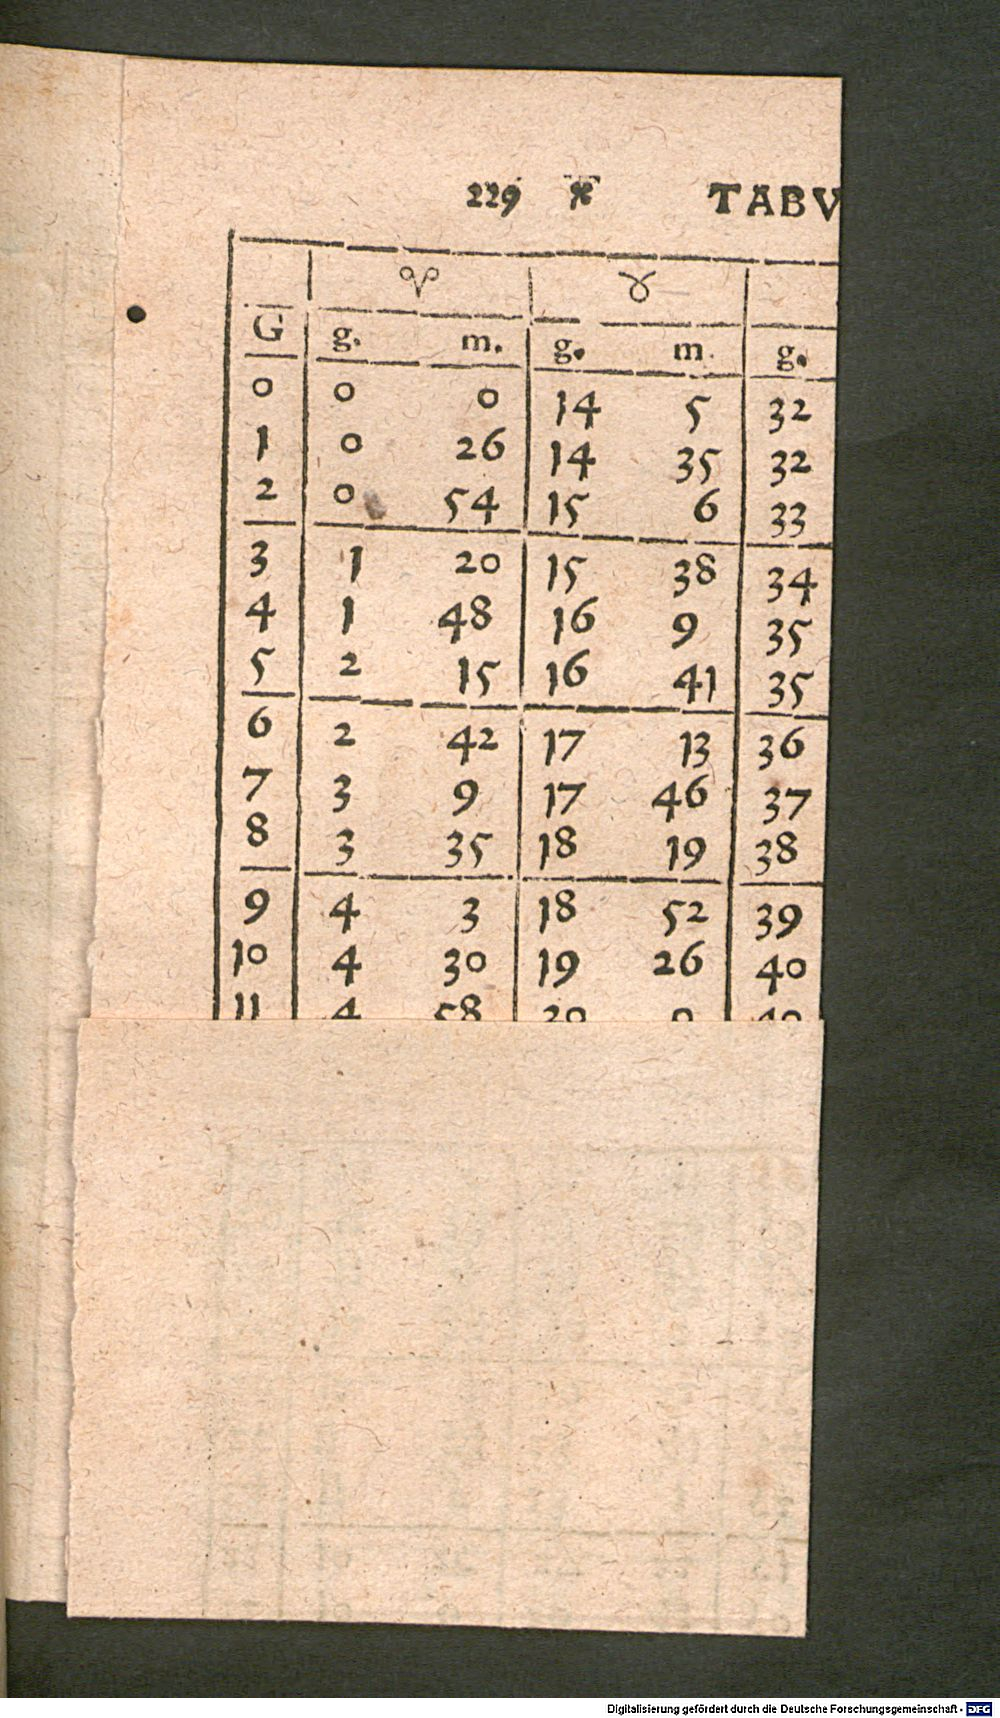 229 * TABV
♈ ♉
G g. m. g. m. g.
0 0 0 14 5 32
1 0 26 14 35 32
2 0 54 15 6 33
3 1 20 15 38 34
4 1 48 16 9 35
5 2 15 16 41 35
6 2 42 17 13 36
7 3 9 17 46 37
8 3 35 18 19 38
9 4 3 18 52 39
10 4 30 19 26 40
11 4 58 20 0 40
Digitalisierung gefördert durch die Deutsche Forschungsgemeinschaft - DFG